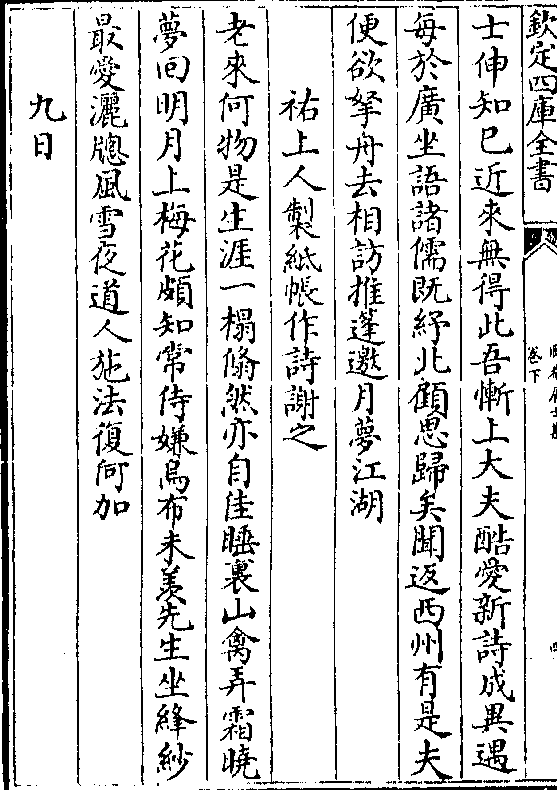 欽定四庫全書
卷下
士伸知已近來無得此吾慚上大夫酷愛新詩成異遇
每於廣坐語諸儒既紆北顧思歸矣聞返西州有是夫
便欲拏舟去相訪推蓬邀月夢江湖
祐上人製紙帳作詩謝之
老來何物是生涯一榻翛然亦自佳睡裏山禽弄霜曉
夢回明月上梅花頗知常侍嫌烏布未羨先生坐絳紗
最愛灑牕風雪夜道人施法復何加
九日